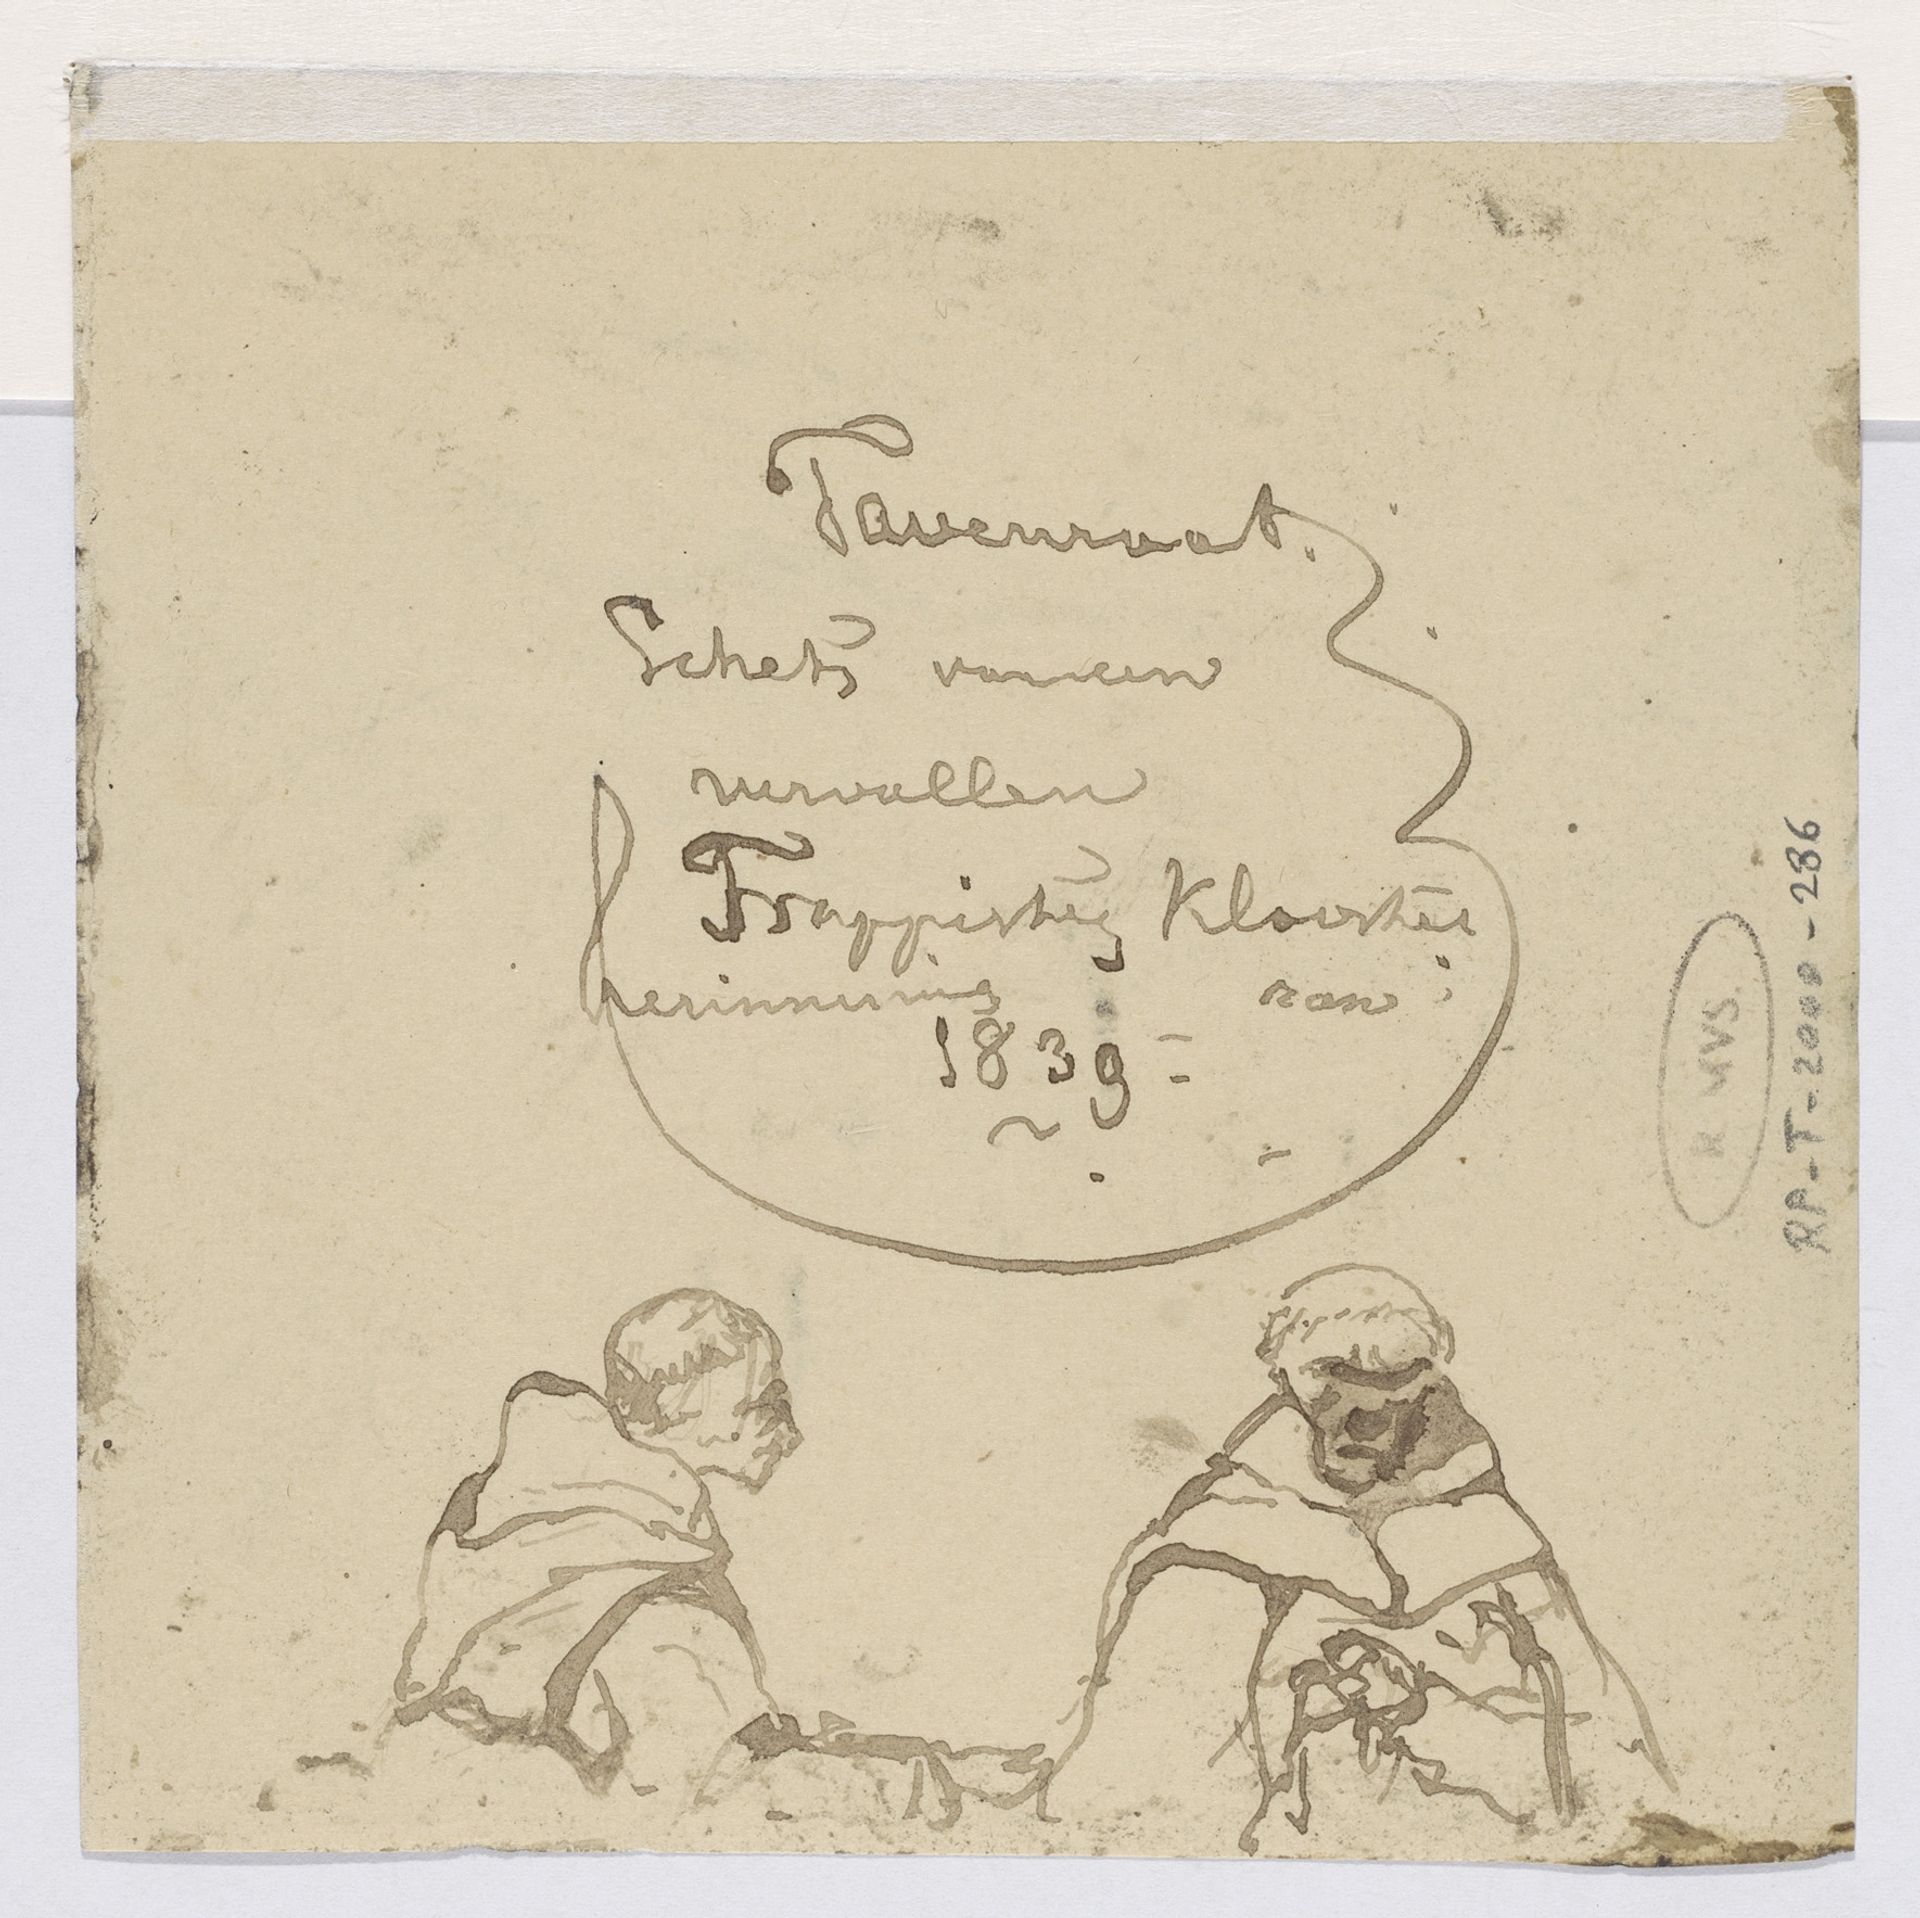 Tavenraat.
Schets van een
vervallen
Trappisten Klooster
herinnering van
1839
R.MVS.
RP-T-2000-286